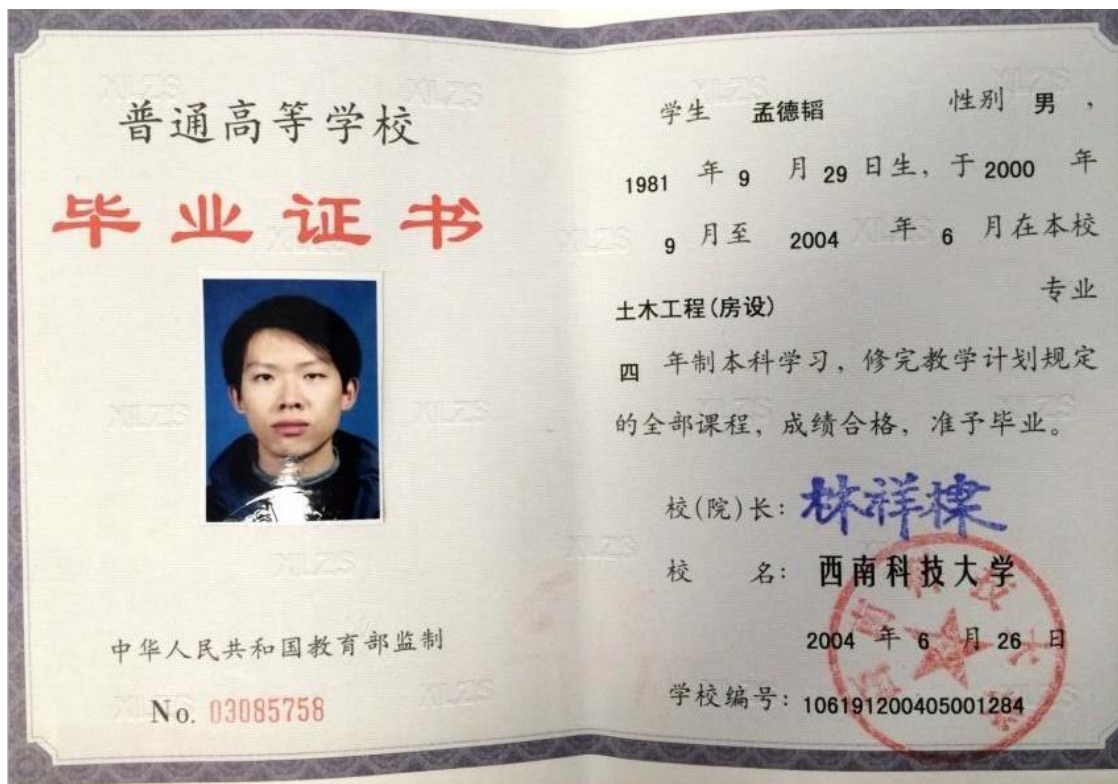 普通高等学校
毕业证书
中华人民共和国教育部监制
No. 03085758
学生 孟德韬 性别 男，
1981 年 9 月 29 日生，于 2000 年
9 月至 2004 年 6 月在本校
土木工程(房设) 专业
四 年制本科学习，修完教学计划规定
的全部课程，成绩合格，准予毕业。
校(院)长：林祥棣
校 名：西南科技大学
2004 年 6 月 26 日
学校编号：106191200405001284
西南科技大学
XLZS
XLZS
XLZS
XLZS
XLZS
XLZS
XLZS
XLZS